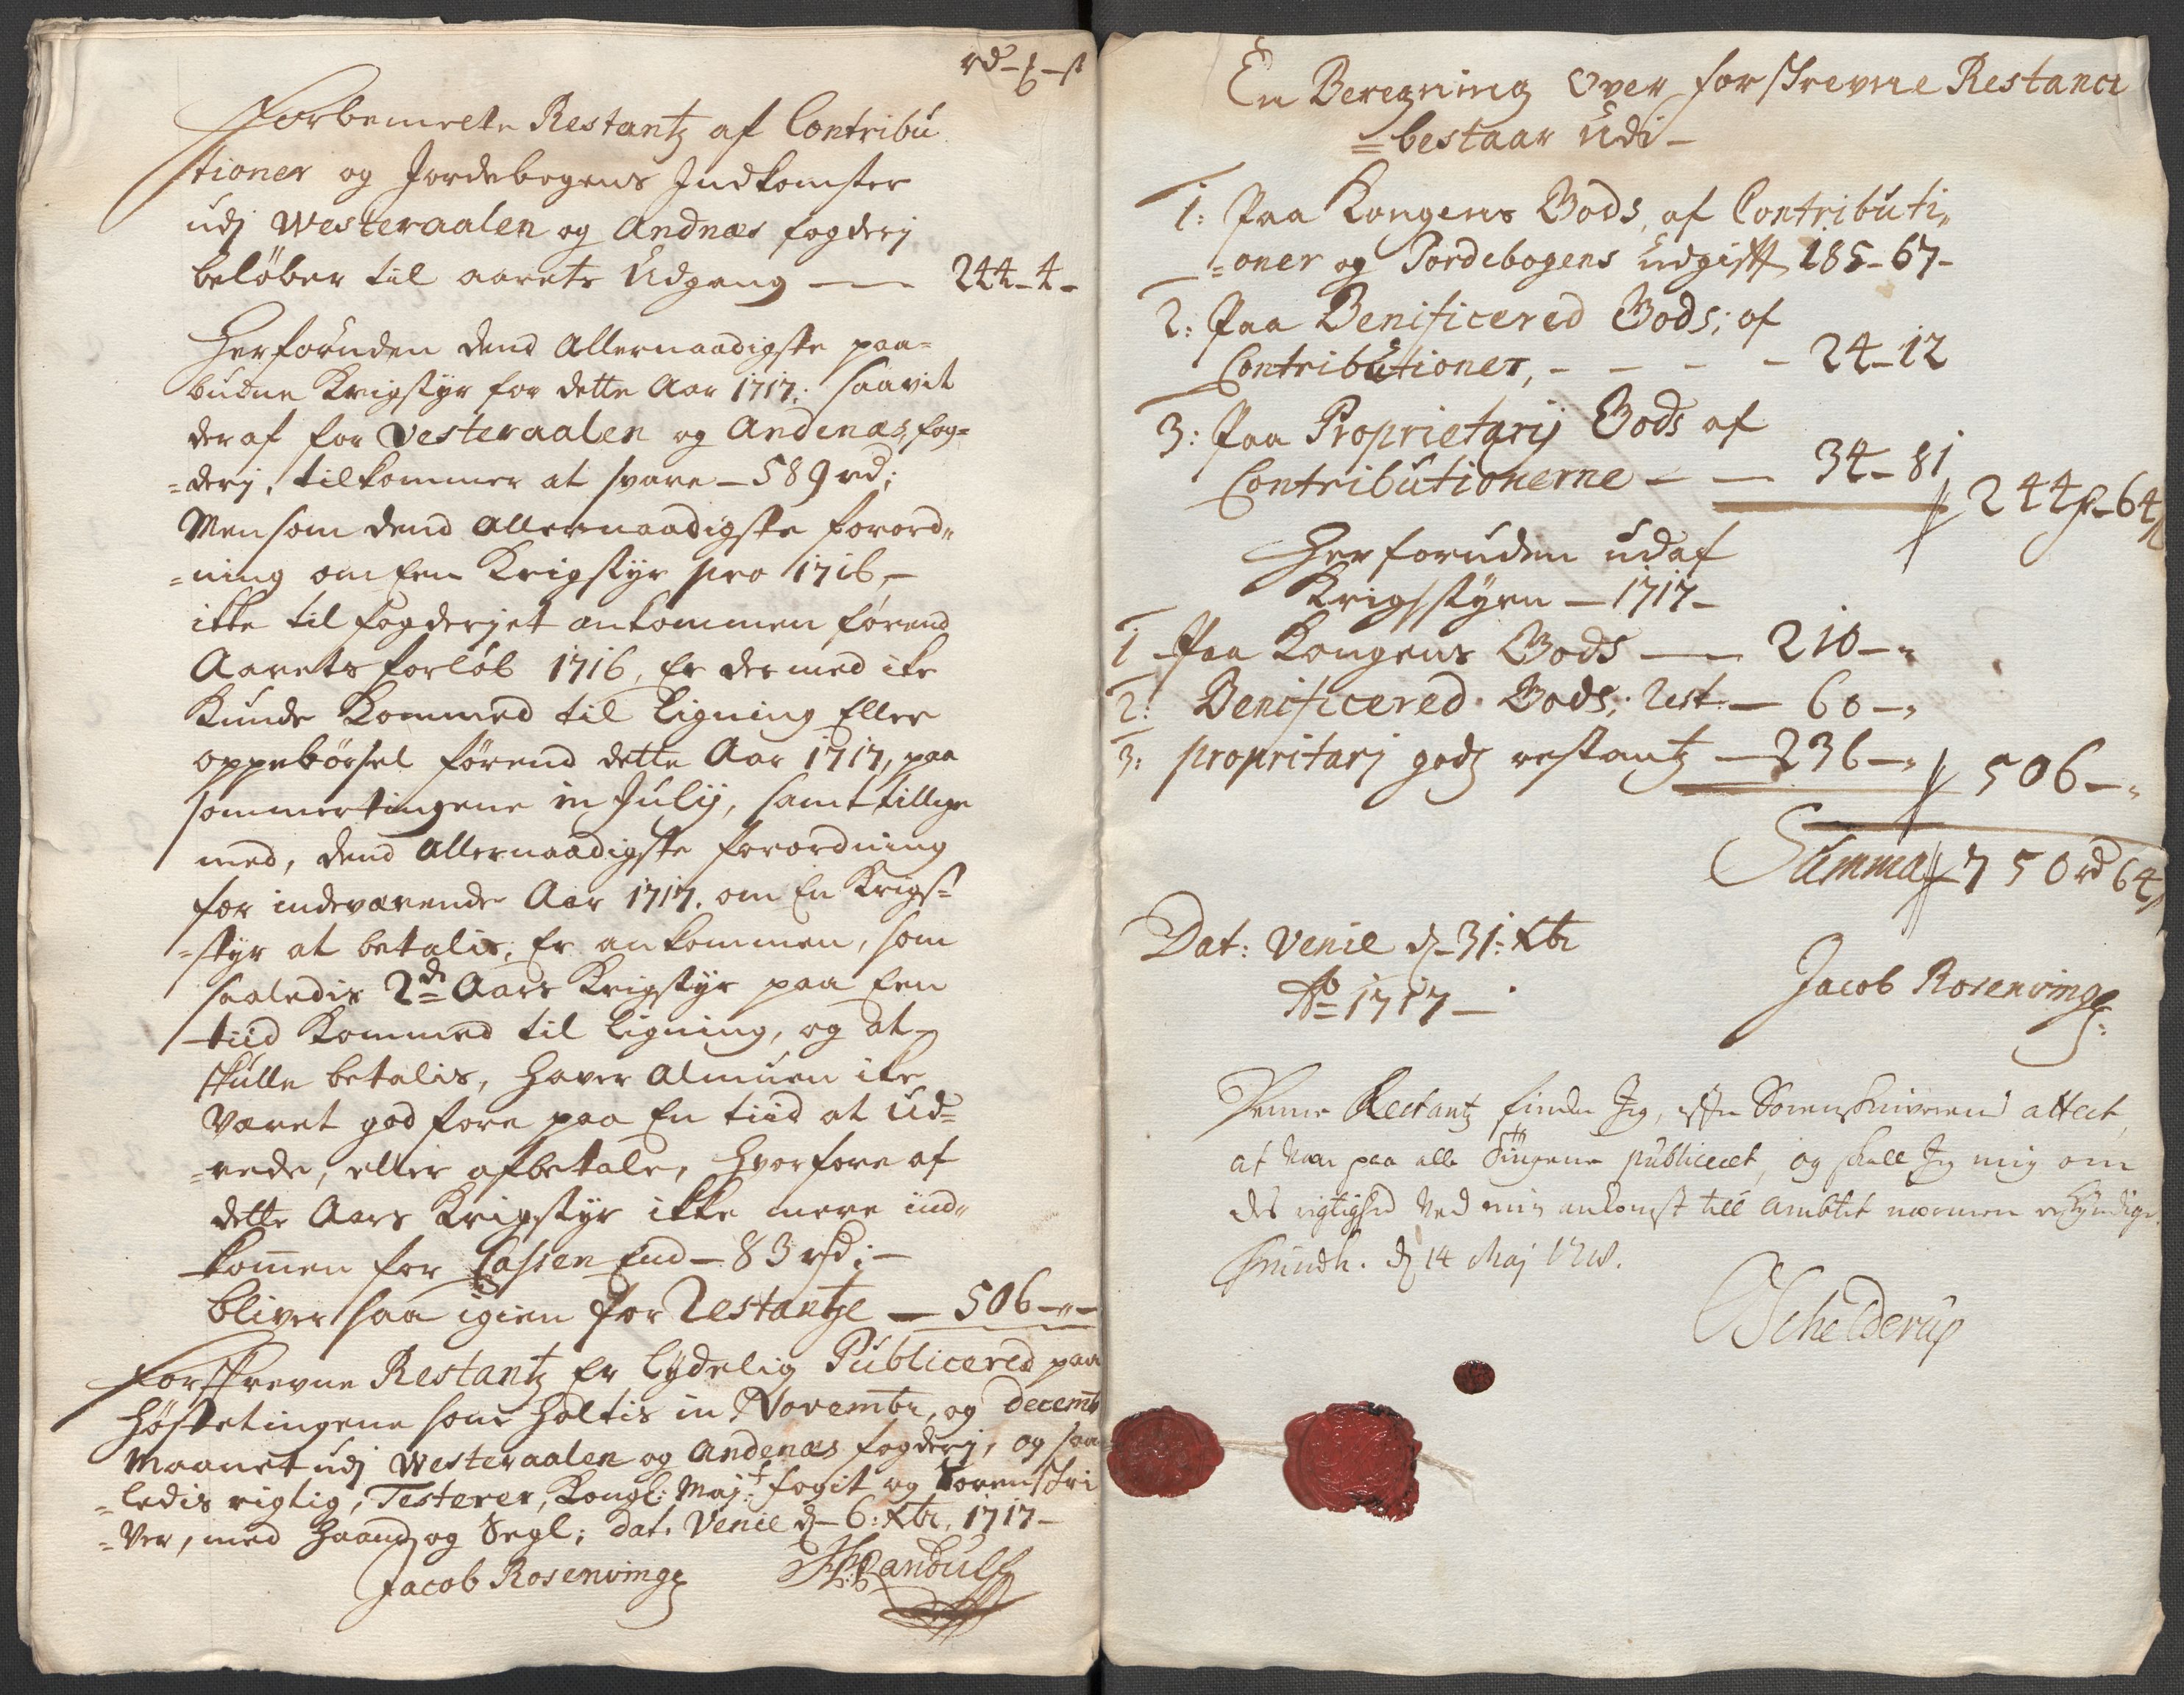 rd - ₰ - ß
Forbemelte Restantz af Contribu
tioner og Jordebogens Indkomster
udj Westeraalen og Andnæs fogderj
beløber til aarets Udgang — 244 - 4 -
Herforuden dend Allernaadigste paa-
budne Krigstyr for dette Aar 1717: saavit
deraf for Vesteraalen og Andenæs, fog=
=derj, tilkommer at svare - 589 rd;
Men som dend Allernaadigste forord„
=ning om Een Krigstyr pro 1716,-
ikke til fogderjet ankommen førend
Aarets forløb 1716, Er dermed iche
Kunde Kommed til Ligning Eller
oppebørsel førend dette Aar 1717, paa
sommertingene in Julij, samt tillige
med, dend Allernaadigste forordning
for indeværende Aar 1717. om En Krigs=
=styr at betalis, Er ankommen, som
saaledis 2de Aars Krigstyr paa Een
tiid Kommed til Ligning, og at
skulle betalis, haver Almuen iche
været god fore paa En tiid at Ud=
=rede, eller afbetale, hvorfore af
dette Aars Krigstyr ikke mere ind„
kom̅en for Cassen End - 83 rd;-
bliver saa igien for Restantze — 506 -„-
Forskrevne Restantz Er lydelig Publicered paa
høstetingene som holtis in Novembr, og decemb
Maanet udj Westeraalen og Andenæs fogderj, og saa
=ledis rigtig, Testerer, Kongl: Maj:t fogit og Sorenskri
=ver, med haand og Segl; dat. Venie d- 6: Xbr. 1717-
Jacob Rosenvinge Randulf
En Beregning Over forskrevne Restance
=bestaar Udi-
1: Paa Kongens Gods, af Contributi„
=oner og Jordebogens Udgift 185 - 67 -
2: Paa Benificered Gods; af
Contributioner, - - - - 24 - 12
3: Paa Proprietarij Gods af
Contributionerne - — 34 - 81
244 - 64
Herforuden udaf
Krigsstyren — 1717 -
1 Paa Kongens Gods — 210 -„
2: Benificered Gods; Rest: — 60 -„
3: propritarj godz restantz — 236 -„
506 -„
Summa 750 rd 64
Dat: Venie d- 31: Xbr
Ao 1717 —
Jacob Rosenvinge
Denne Restantz finder Jeg, efter Sorenskriverens attest,
at være paa alle Tingene publiceret, og skall Jeg mig om
des rigtighed ved min ankomst till Ambtet nærmere erkyndige.
Trundh. d 14 Maj 1718.
Schelderup